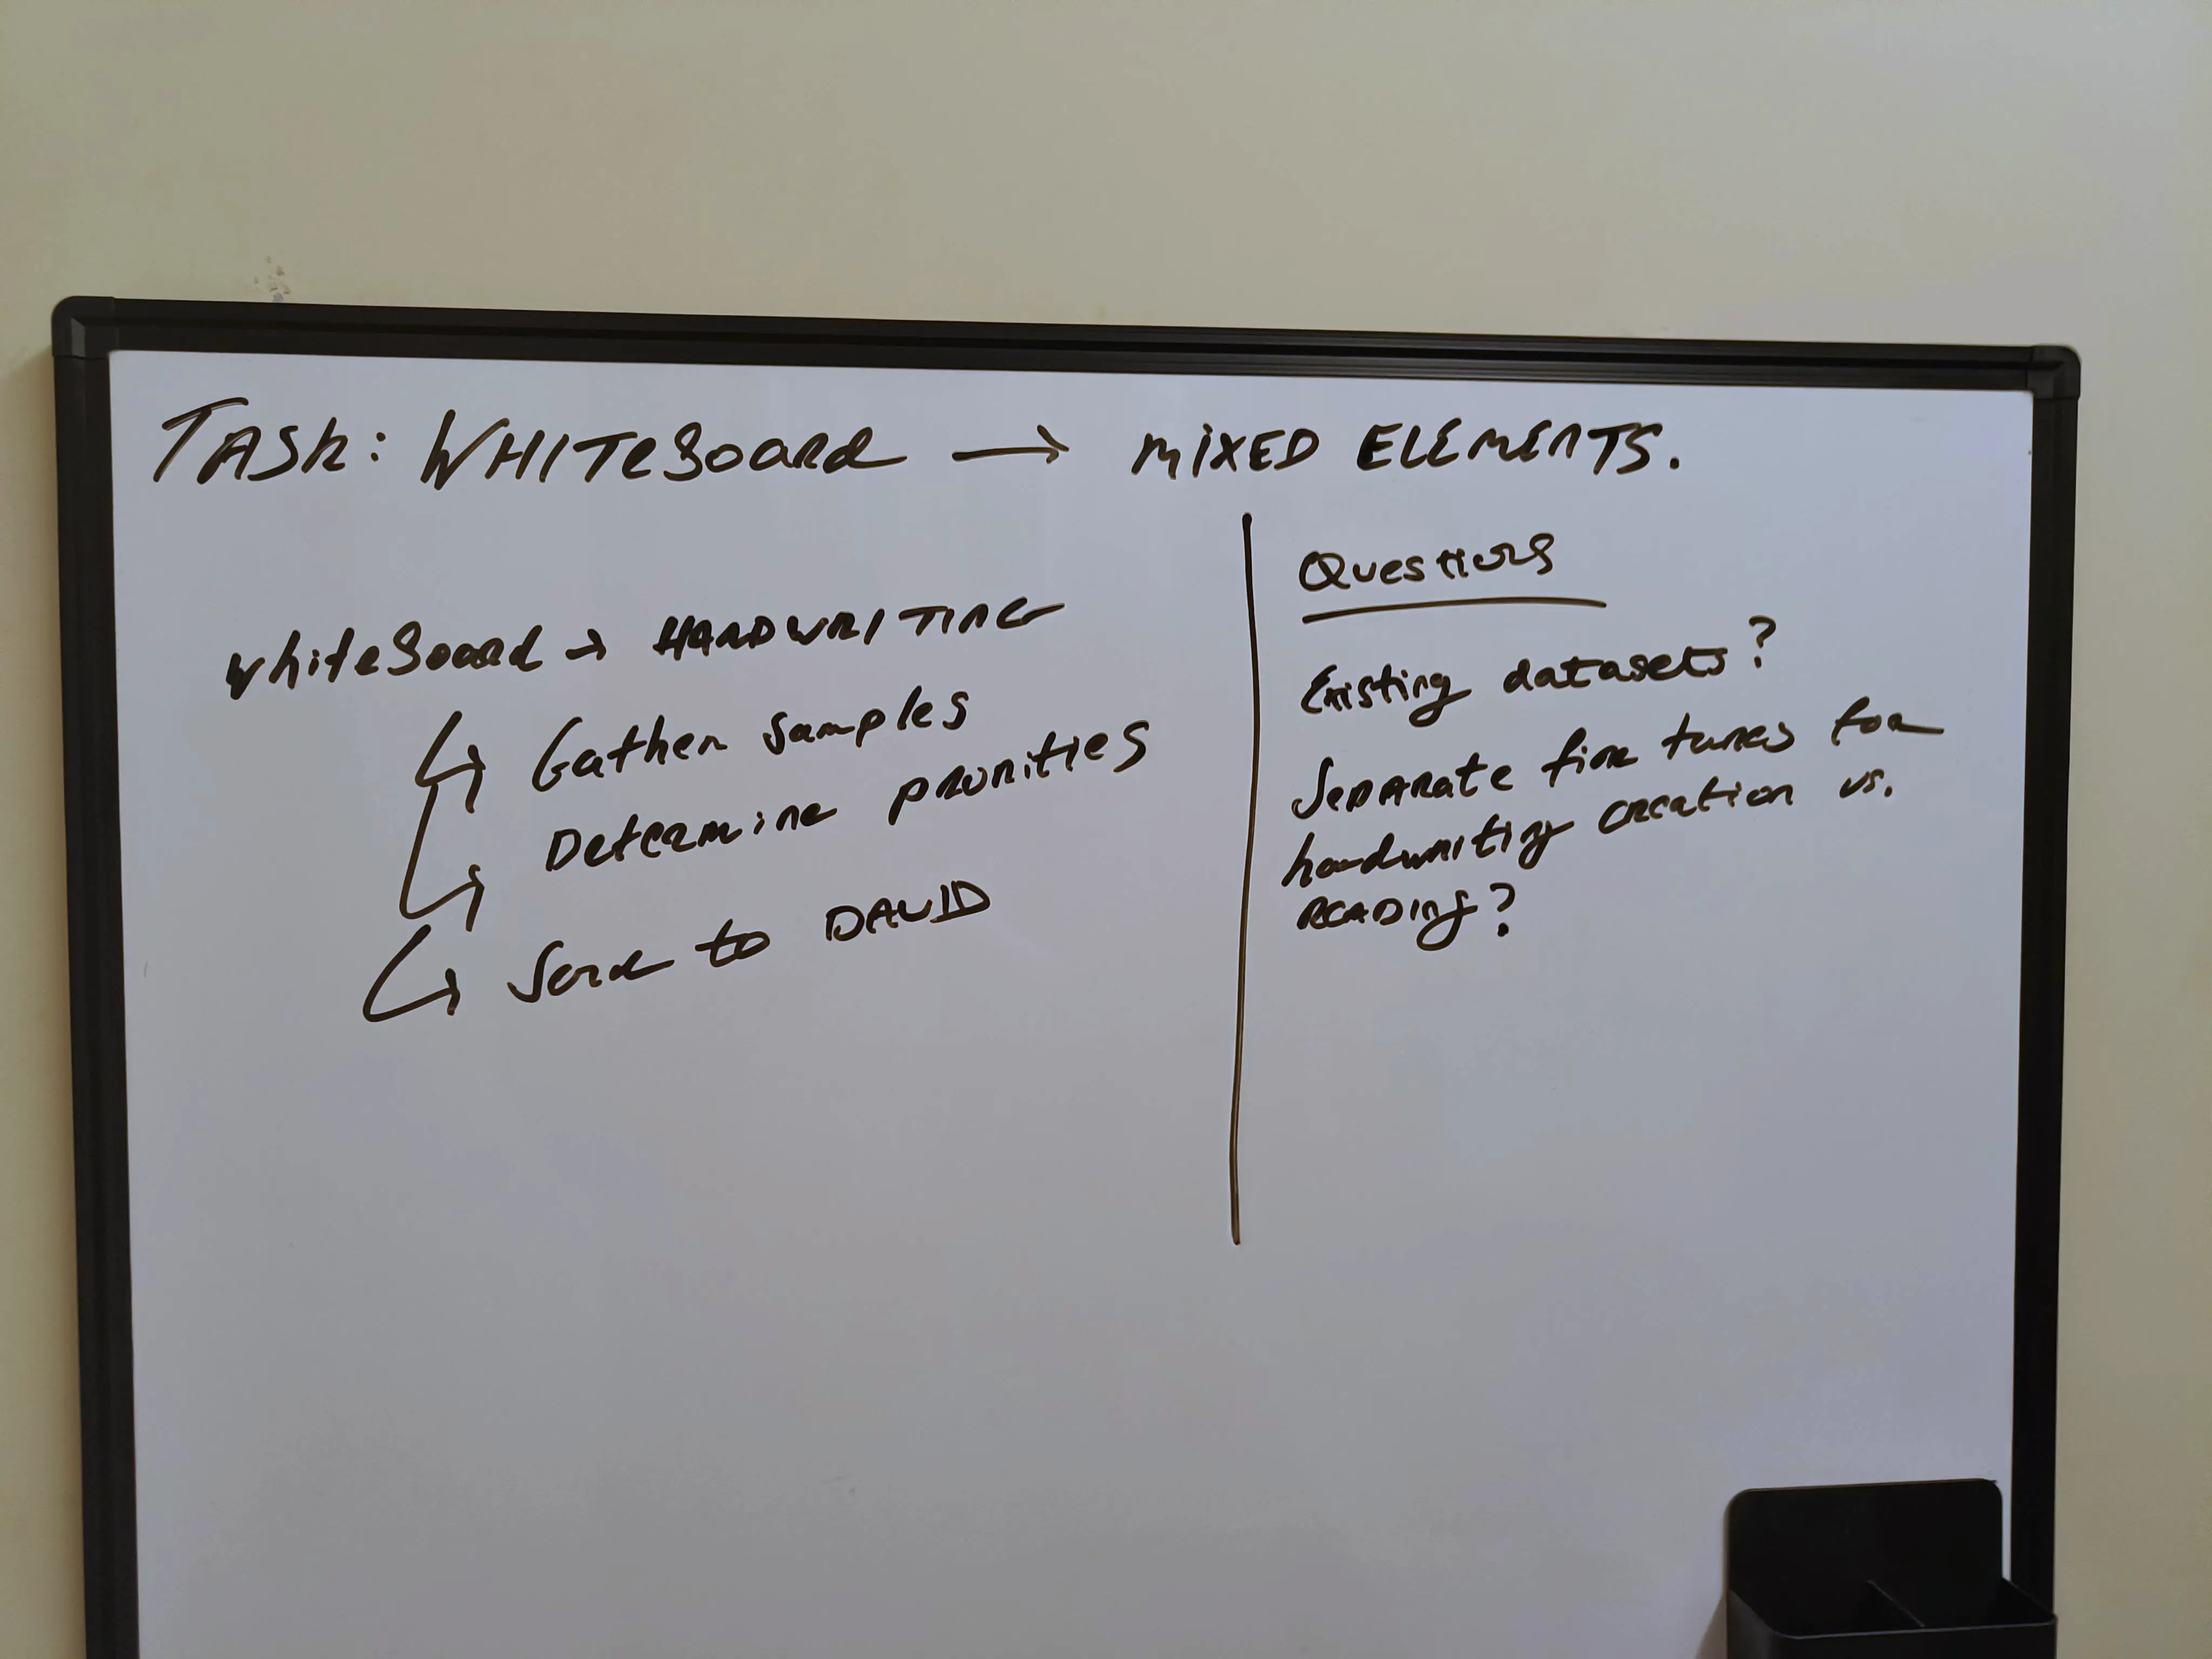 TASK: WHITEBOARD → MIXED ELEMENTS.
WhiteBoard → HANDWRITING
↳ Gather samples
↳ Determine priorities
↳ Send to DAVID
Questions
Existing datasets?
Separate fine tunes for
handwriting creation vs.
READING?